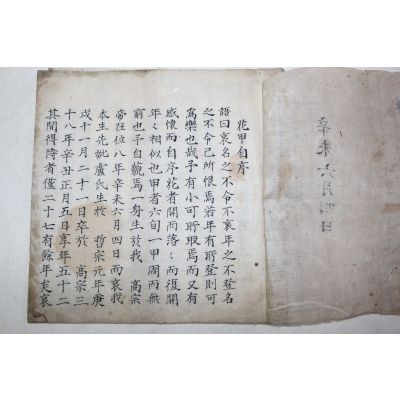 辛未六月四日
花甲自序
語曰哀名之不令不哀年之不登名
之不令己所恨焉若年有所登則可
爲樂也哉予有小可所取焉而又有
感懷而自序花者開而落〻而復開
年〻相似也甲者六旬一甲周而無
窮也予自藐焉一身生於我 高宗
帝在位八年辛未六月四日而哀我
本生先妣盧氏生於 哲宗元年庚
戌十一月二十一日卒於 高宗三
十八年辛丑正月五日享年五十二
其間得侍者僅二十七有餘年矣哀